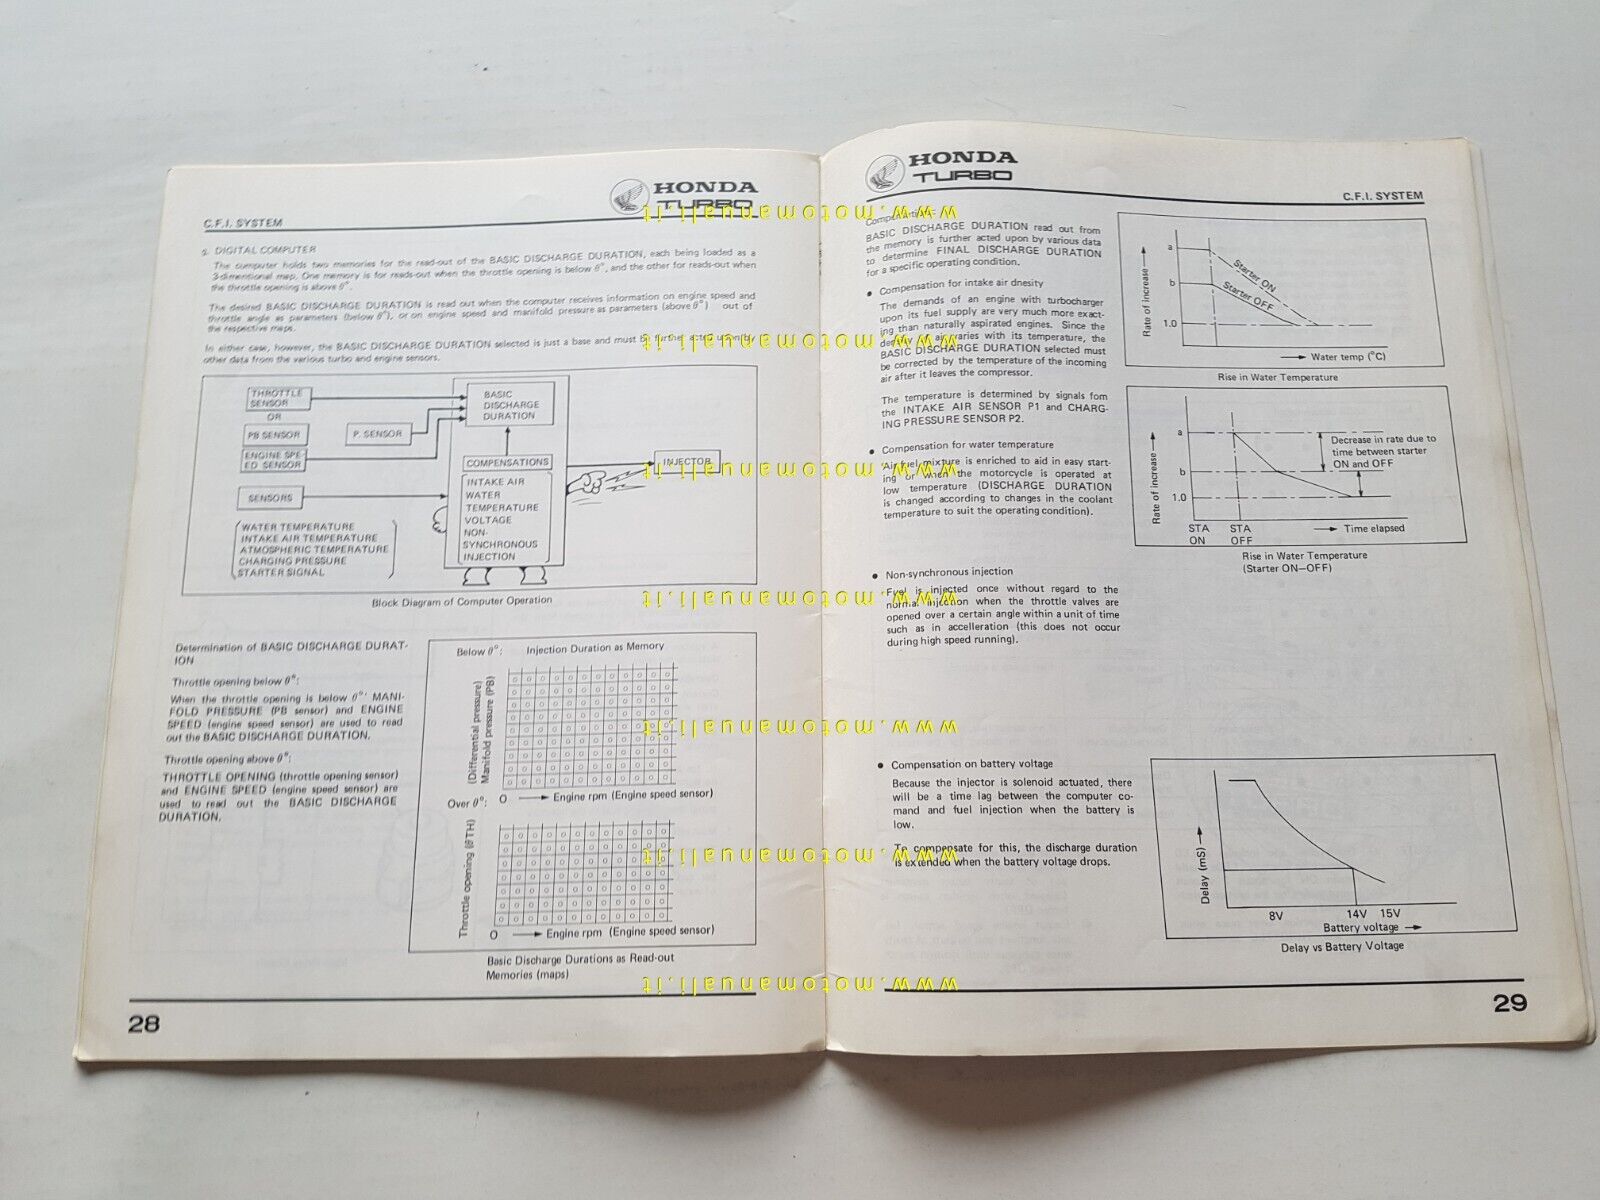 HONDA
TURBO
C.F.I. SYSTEM
2. DIGITAL COMPUTER
The computer holds two memories for the read-out of the BASIC DISCHARGE DURATION, each being loaded as a
3-dimentional map. One memory is for reads-out when the throttle opening is below θ°, and the other for reads-out when
the throttle opening is above θ°.
The desired BASIC DISCHARGE DURATION is read out when the computer receives information on engine speed and
throttle angle as parameters (below θ°), or on engine speed and manifold pressure as parameters (above θ°) out of
the respective maps.
In either case, however, the BASIC DISCHARGE DURATION selected is just a base and must be further acted upon by
other data from the various turbo and engine sensors.
THROTTLE
SENSOR
OR
PB SENSOR
P. SENSOR
ENGINE SPE-
ED SENSOR
SENSORS
WATER TEMPERATURE
INTAKE AIR TEMPERATURE
ATMOSPHERIC TEMPERATURE
CHARGING PRESSURE
STARTER SIGNAL
BASIC
DISCHARGE
DURATION
COMPENSATIONS
INTAKE AIR
WATER
TEMPERATURE
VOLTAGE
NON-
SYNCHRONOUS
INJECTION
INJECTOR
Block Diagram of Computer Operation
Determination of BASIC DISCHARGE DURAT-
ION
Throttle opening below θ°:
When the throttle opening is below θ°' MANI-
FOLD PRESSURE (PB sensor) and ENGINE
SPEED (engine speed sensor) are used to read
out the BASIC DISCHARGE DURATION.
Throttle opening above θ°:
THROTTLE OPENING (throttle opening sensor)
and ENGINE SPEED (engine speed sensor) are
used to read out the BASIC DISCHARGE
DURATION.
Below θ°: Injection Duration as Memory
(Differential pressure)
Manifold pressure (PB)
Over θ°: O Engine rpm (Engine speed sensor)
Throttle opening (θTH)
O Engine rpm (Engine speed sensor)
Basic Discharge Durations as Read-out
Memories (maps)
28
HONDA
TURBO
C.F.I. SYSTEM
BASIC DISCHARGE DURATION read out from
the memory is further acted upon by various data
to determine FINAL DISCHARGE DURATION
for a specific operating condition.
• Compensation for intake air dnesity
The demands of an engine with turbocharger
upon its fuel supply are very much more exact-
ing than naturally aspirated engines. Since the
density of air varies with its temperature, the
BASIC DISCHARGE DURATION selected must
be corrected by the temperature of the incoming
air after it leaves the compressor.
The temperature is determined by signals fom
the INTAKE AIR SENSOR P1 and CHARG-
ING PRESSURE SENSOR P2.
• Compensation for water temperature
Air fuel mixture is enriched to aid in easy start-
ing or when the motorcycle is operated at
low temperature (DISCHARGE DURATION
is changed according to changes in the coolant
temperature to suit the operating condition).
• Non-synchronous injection
Fuel is injected once without regard to the
normal injection when the throttle valves are
opened over a certain angle within a unit of time
such as in accelleration (this does not occur
during high speed running).
• Compensation on battery voltage
Because the injector is solenoid actuated, there
will be a time lag between the computer co-
mand and fuel injection when the battery is
low.
To compensate for this, the discharge duration
is extended when the battery voltage drops.
Rate of increase
a
b
1.0
Starter ON
Starter OFF
Water temp (°C)
Rise in Water Temperature
Rate of increase
a
b
1.0
Decrease in rate due to
time between starter
ON and OFF
STA
ON
STA
OFF
Time elapsed
Rise in Water Temperature
(Starter ON–OFF)
Delay (mS)
8V 14V 15V
Battery voltage
Delay vs Battery Voltage
29
www.motomanuali.it
www.motomanuali.it
www.motomanuali.it
www.motomanuali.it
www.motomanuali.it
www.motomanuali.it
www.motomanuali.it